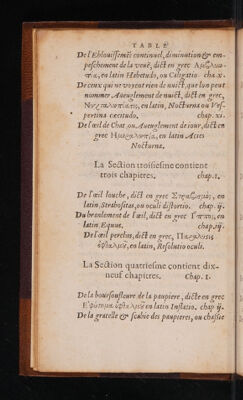 TABLE
De l'Eblouissemẽt continuel, diminution & em-
peschement de la veuë, dict en grec Αμβλυω-
πία, en latin Hebetudo, ou Caligatio. cha. x.
De ceux qui ne voyent rien de nuict, que lon peut
nommer Aueuglement de nuict, dict en grec,
Νυκταλωπίασις, en latin, Nocturna ou Ves-
pertina cæcitudo. chap. xi.
De l'œil de Chat, ou Aueuglement de iour, dict en
grec en latin Acies
Nocturna.
La Section troisiesme contient
trois chapitres. chap. I.
De l'œil louche, dict en grec Στραβισμὸς, en
latin, Strabositas, ou oculi distortio. chap. ij.
Du branlement de l'œil, dict en grec Ἵππος, en
latin, Equus. chap. iij.
De l'œil perclus, dict en grec, Παράλυσις
ὀφθαλμοῦ, en latin, Resolutio oculi.
La Section quatriesme contient dix-
neuf chapitres. Chap. I.
De la boursoufleure de la paupiere, dicte en grec
ὀφθαλμῶν en latin Inflatio. chap ij.
De la gratelle & scabie des paupieres, ou chassie